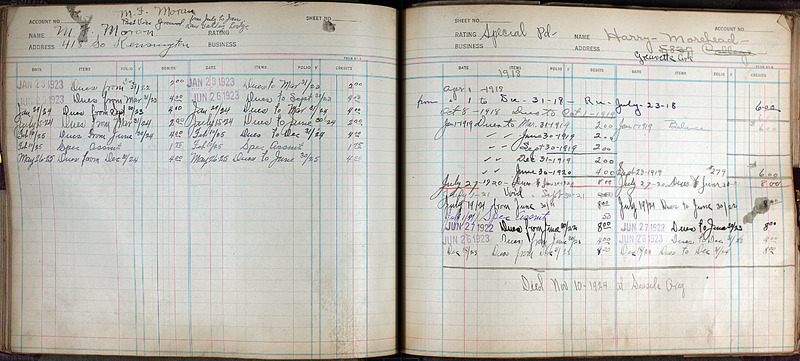 M. F. Moran
ACCOUNT NO.
from July to Jan,
SHEET NO.
Lodge
NAME M. Moran RATING
ADDRESS 413 So Kensington BUSINESS
DATE ITEMS FOLIO DEBITS DATE ITEMS FOLIO CREDITS
JAN 23 1923 Dues from Dec 31/22 2.00 JAN 23 1923 Dues to Mar 31/23 2.00
1923 Dues from Mar 31/23 4.00 JUN 26 1923 Dues to Sept 31/23 4.00
Jan 20/24 Dues from Sept 31/23 4.00 Jan 20/24 Dues to Mar 31/24 4.00
Dues from Mar 31/24 2.00 Dues to June 30/24 2.00
Feb 10/25 Dues from June 30/24 4.00 Feb 10/25 Dues to Dec 31/24 4.00
Feb 10/25 Spec Assmt 1.75 Feb 10/25 Spec Assmt 1.75
May 26 25 Dues from Dec 31/24 4.00 May 26 25 Dues to June 30/25 4.00
SHEET NO. ACCOUNT NO.
RATING Special Pd- NAME Harry Morehead
BUSINESS ADDRESS 5837 College
Gravette Ark
DATE ITEMS FOLIO DEBITS DATE ITEMS FOLIO CREDITS
1918
Apr 1 - 1918
from 1 to Dec-31-18 - Rec July-23-18 6.00
Oct 8 - 1918 Dues to Oct 1 - 1919
Jan-1919 Dues to Mar 31-1919 2.00 Jan-1919 Balance
" " June 30-1919 2.00
" " Sept 30-1919 2.00
" " Dec 31-1919 2.00
" " June 30-1920 4.00 Sept 23-1919 #279 6.00
July 27-1920 8.00 July 27-20 Dues to June 8.00
Void
July 14/21 from June 30/21 8.00 July 14/21 Dues to June 30/22 8.00
Spec Assmt .50
JUN 27 1922 Dues from June 30/22 8.00 JUN 27 1922 Dues to June 30/23 8.00
JUN 26 1923 Dues from June 30/23 4.00 JUN 26 1923 Dues to Dec 31/23 4.00
Dec 19/23 Dues from Dec 31/23 8.00 Dec 19/23 Dues to Dec 31/24 8.00
Died Nov 10-1924 at